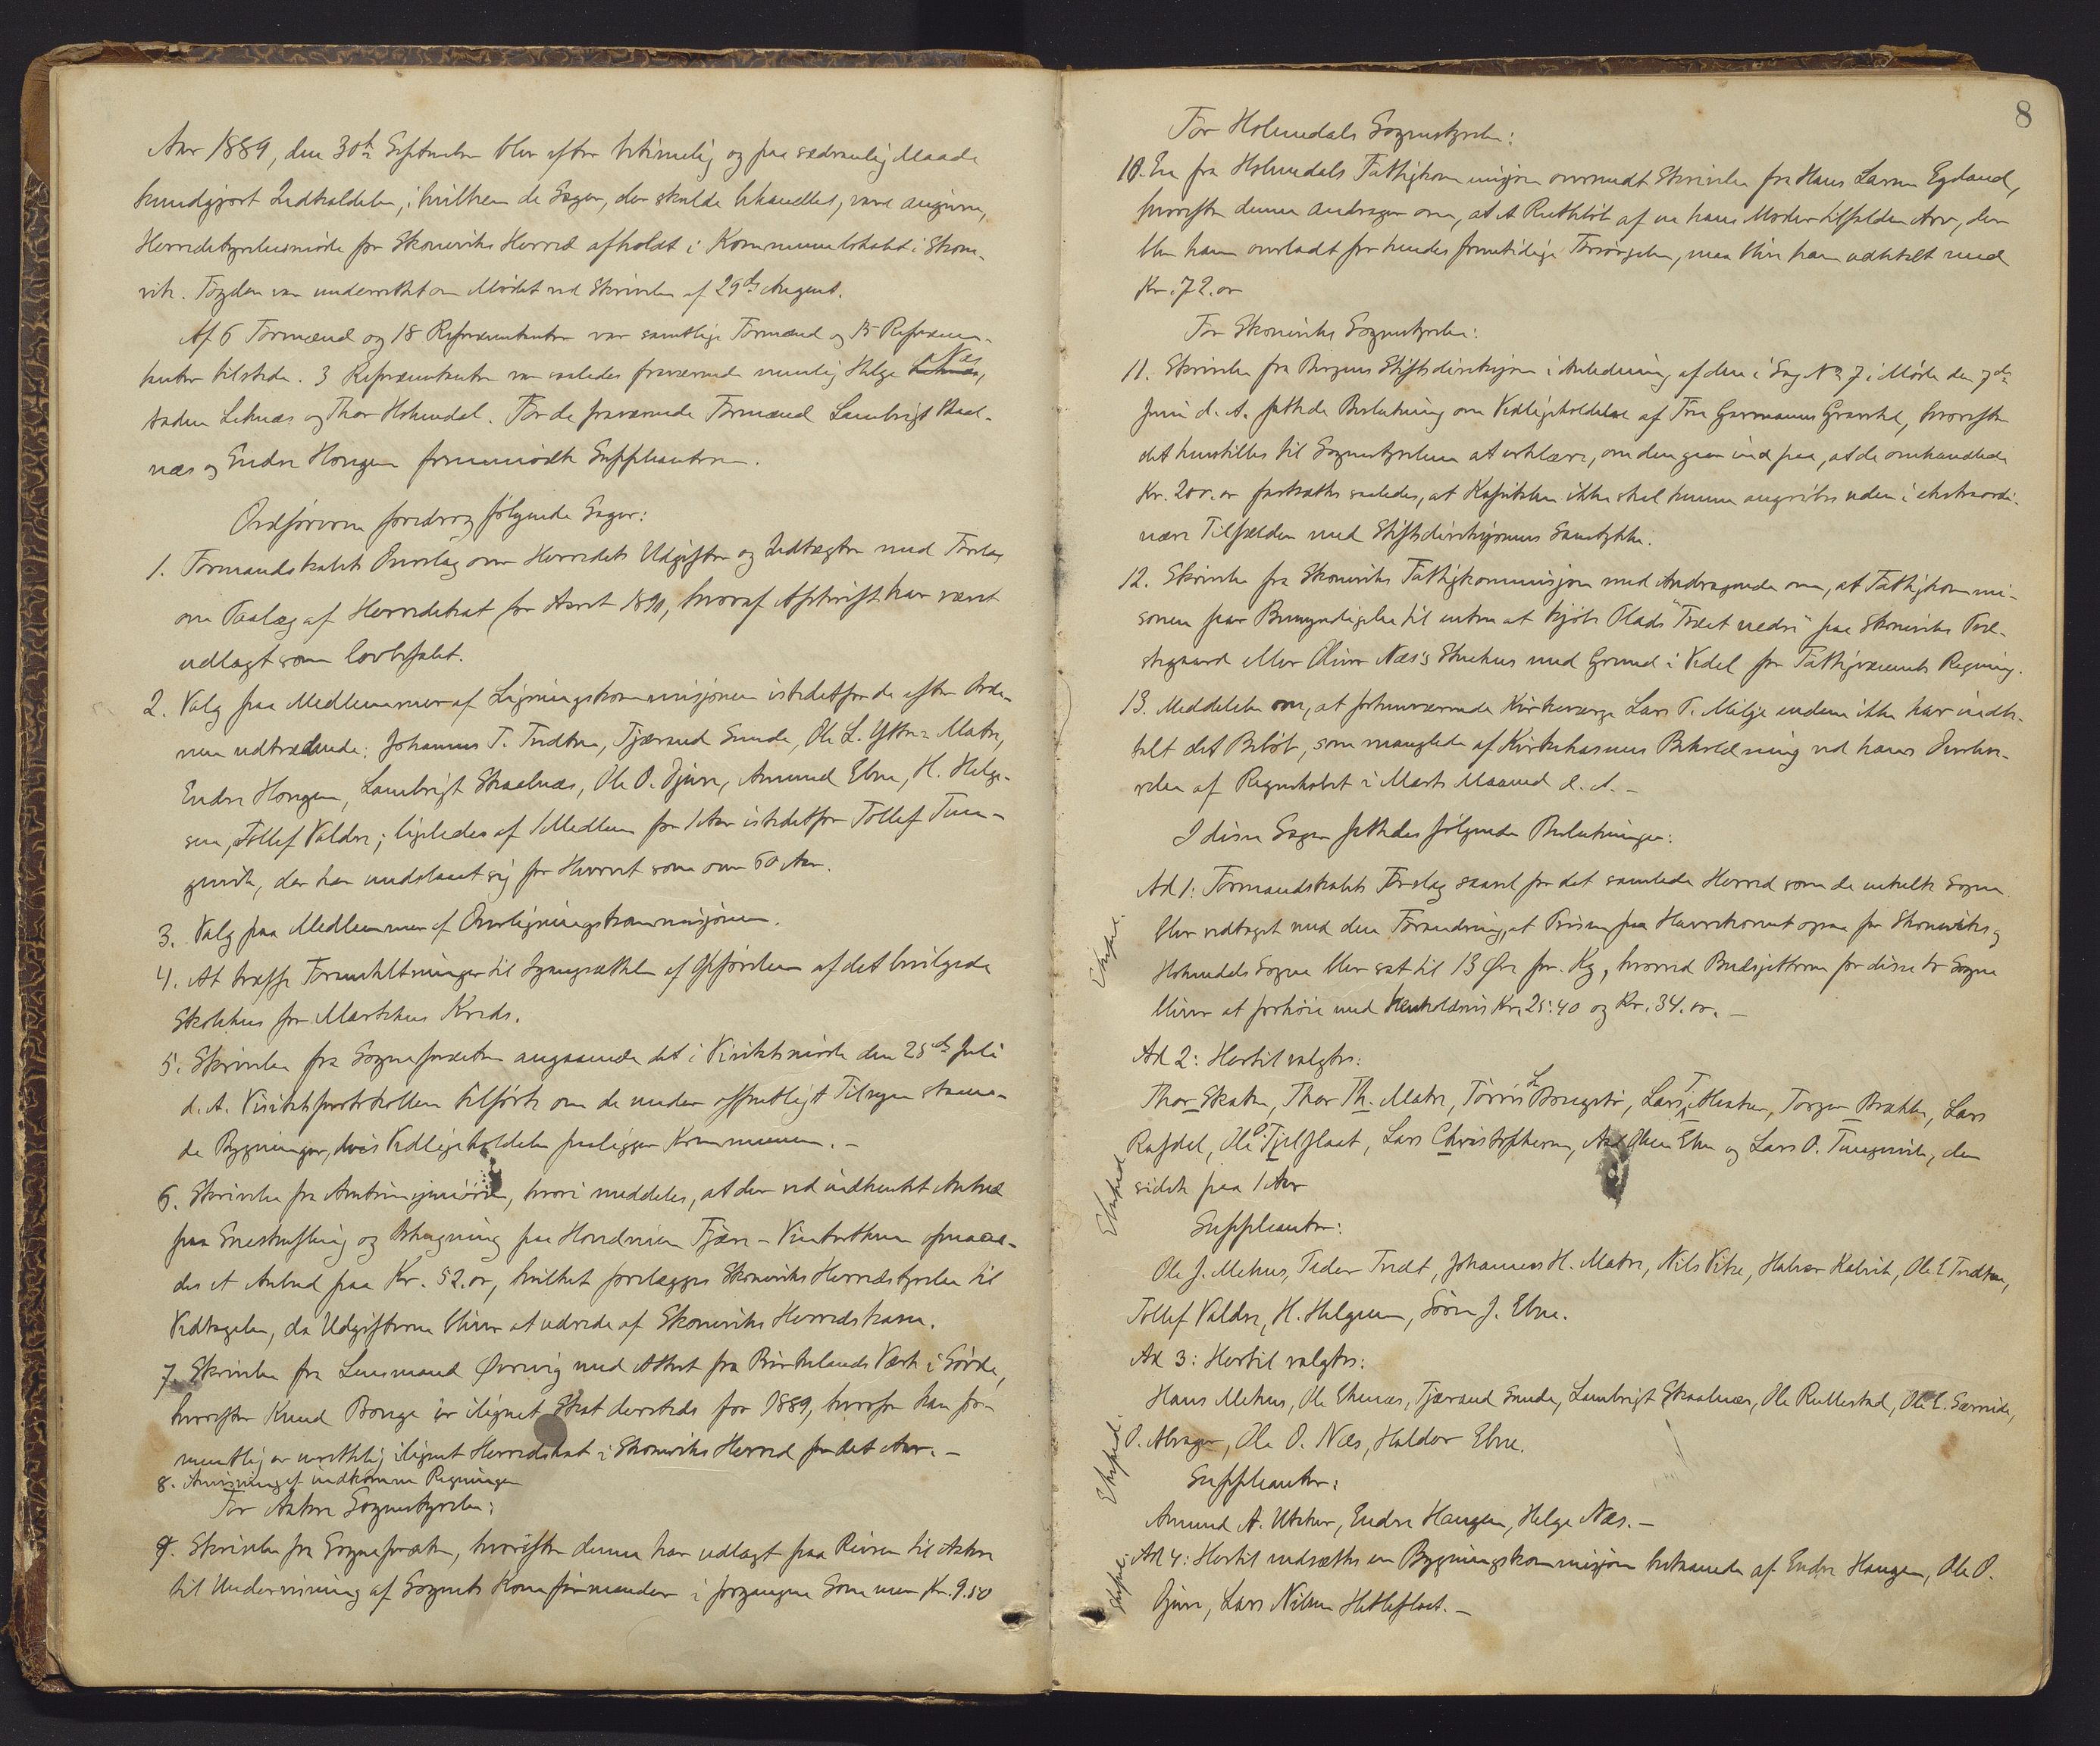 Aar 1889, den 30te September blev efter betimelig og paa sædvanlig Maade
kundgjort Indkaldelse, i hvilken de Sager, der skulde behandles, vare angivne,
Herredsstyrelsesmøde for Skoneviks Herred afholdt i Kommunelokalet i Skone-
vik. Fogden var underrettet om Mødet ved Skrivelse af 29de August.
Af 6 Formænd og 18 Repræsentanter var samtlige Formænd og 15 Repræsen-
tanter tilstede. 3 Repræsentanter var saaledes fraværende nemlig Helge Næs,
Leknæs og Thor Holmedal. For de fraværende Formænd Lambrigt Skaal-
næs og Endre Hougen fremmødte Suppleanterne.
Ordføreren foredrog følgende Sager:
1. Formandskabets Overslag over Herredets Udgifter og Indtægter med Forslag
om Paalæg af Herredsskat for Aaret 1890, hvoraf Afskrift har været
udlagt som lovbefalet.
2. Valg paa Medlemmer af Ligningskommisjonen istedetfor de efter Orde-
nen udtrædende: Johannes T. Tredten, Tjærand Sunde, Ole L. Ytre-Matre,
Endre Hougen, Lambrigt Skaalnæs, Ole O. Djuve, Amund Ebne, H. Helge-
sen, Tollef Valdre; ligeledes af 1 Medlem for 1 Aar istedetfor Tollef Tun-
gesvik, der har undslaaet sig for Hvervet som over 60 Aar.
3. Valg paa Medlemmer af Overligningskommisjonen.
4. At træffe Foranstaltninger til Igangsættelse af Opførelsen af det bevilgede
Skolehus for Markhus Kreds.
5. Skrivelse fra Sognepræsten angaaende det i Visitatsmøde den 25de Juli
d. A. Visitatsprotokollen tilførte om de under offentligt Tilsyn staaen-
de Bygninger, hvis Vedligeholdelse paaligger Kommunen. –
6. Skrivelse fra Amtsingeniøren, hvori meddeles, at der ved indhentet Anbud
paa Snestufling og Behugning paa Hovedveien Fjære – Vintertun opnaae-
des et Anbud paa Kr. 52.00, hvilket forelægges Skoneviks Herredsstyrelse til
Vedtagelse, da Udgifterne bliver at udrede af Skoneviks Herredskasse.
7. Skrivelse fra Lensmand Øvrevig med Attest fra Birkelands Værk i Søvde,
hvorefter Knud Bouge er ilignet Skat dersteds for 1889, hvorfor han for-
mentlig er urettelig ilignet Herredsskat i Skoneviks Herred for det Aar. –
8. Anvisning af indkomne Regninger
For Aakre Sognestyrelse:
9. Skrivelse fra Sognepræsten, hvorefter denne har udlagt paa Reisen til Aakre
til Undervisning af Sognets Konfirmander i forgangne Sommer Kr. 9.50
8
For Holmedals Sognestyrelse:
10. En fra Holmedals Fattigkommisjon oversendt Skrivelse fra Hans Larsen Egeland,
hvorefter denne andrager om, at et Restbeløb af en hans Moder tilfalden Arv, der
blev ham overladt for hendes fremtidige Forsørgelse, maa blive ham udbetalt med
Kr. 72.00
For Skoneviks Sognestyrelse:
11. Skrivelse fra Bergens Stiftsdireksjon i Anledning af den i Sag No 7 i Møde den 7de
Juni d. A. fattede Beslutning om Vedligeholdelse af Fru Garmanns Gravsted, hvorefter
det henstilles til Sognestyrelsen at erklære, om den gaar ind paa, at de omhandlede
Kr. 200.00 fastsættes saaledes, at Kapitalen ikke skal kunne angribes uden i ekstraordi-
nære Tilfælder med Stiftsdireksjonens Samtykke.
12. Skrivelse fra Skoneviks Fattigkommisjon med Andragende om, at Fattigkommi-
sjonen faar Bemyndigelse til enten at kjøbe Plads "Trædet nedre" paa Skoneviks Præ-
stegaard eller Oliver Næs's Stuehus med Grund i Vedel for Fattigvæsenets Regning.
13. Meddelelse om, at forhenværende Kirkeværge Lars T. Milje endnu ikke har indbe-
talt det Beløb, som manglede af Kirkekassens Beholdning ved hans Overleve-
relse af Regnskabet i Marts Maaned d. A. –
I disse Sager fattedes følgende Beslutninger:
Eksped.
Ad 1: Formandskabets Forslag saavel for det samlede Herred som de enkelte Sogne
blev vedtaget med den Forandring, at Prisen paa Havrekornet ogsaa for Skoneviks og
Holmedals Sogne blev sat til 13 Øre pr. Kg, hvorved Budsjetterne for disse to Sogne
bliver at forhøie med henholdsvis Kr. 25.40 og Kr. 34.00. –
Eksped
Ad 2: Hertil valgtes:
Thor Skaten, Thor Th. Matre, Tørris L. Bougstø, Lars T. Alsaker, Torger Brakke, Lars
Rafdal, Ole O. Fjelflaat, Lars Christophersen, Ole Ebne og Lars O. Tungesvik, den
sidste paa 1 Aar
Suppleanter:
Ole J. Mehus, Peder Tredt, Johannes H. Matre, Nils Vike, Halvor Kalvik, Ole E. Tredten,
Tollef Valdre, H. Helgesen, Søren J. Ebne.
Eksped.
Ad 3: Hertil valgtes:
Hans Mehus, Ole Ekenæs, Tjærand Sunde, Lambrigt Skaalnæs, Ole Rullestad, Ole E. Særvide,
O. Alvager, Ole O. Næs, Haldor Ebne.
Suppleanter:
Amund A. Utaker, Endre Haugen, Helge Næs. –
Eksped.
Ad 4: Hertil nedsættes en Bygningskommisjon bestaaende af Endre Haugen, Ole O.
Djuve, Lars Nilsen Hetleflaat. –